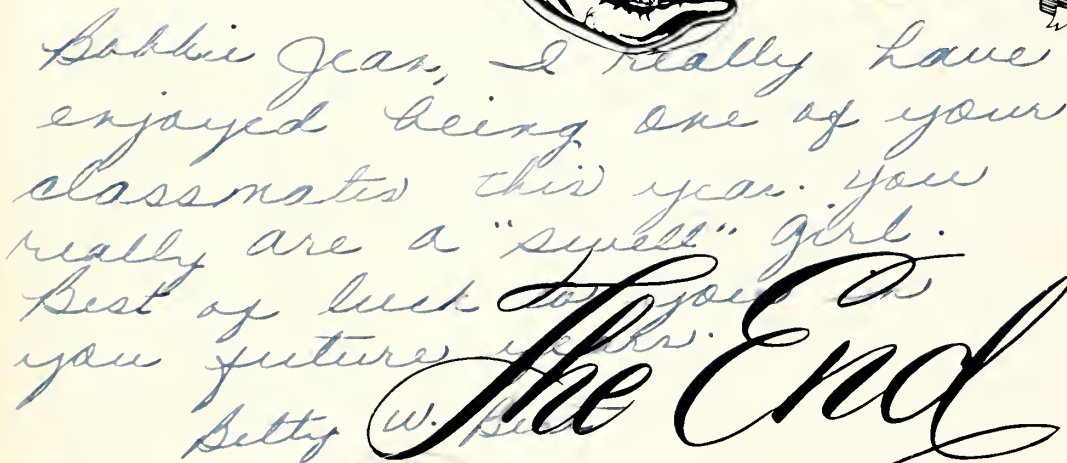 Bobbie Jean, I really have
enjoyed being one of your
classmates this year. You
really are a "swell" girl.
Best of luck to you in
you future years.
Betty W.
The End